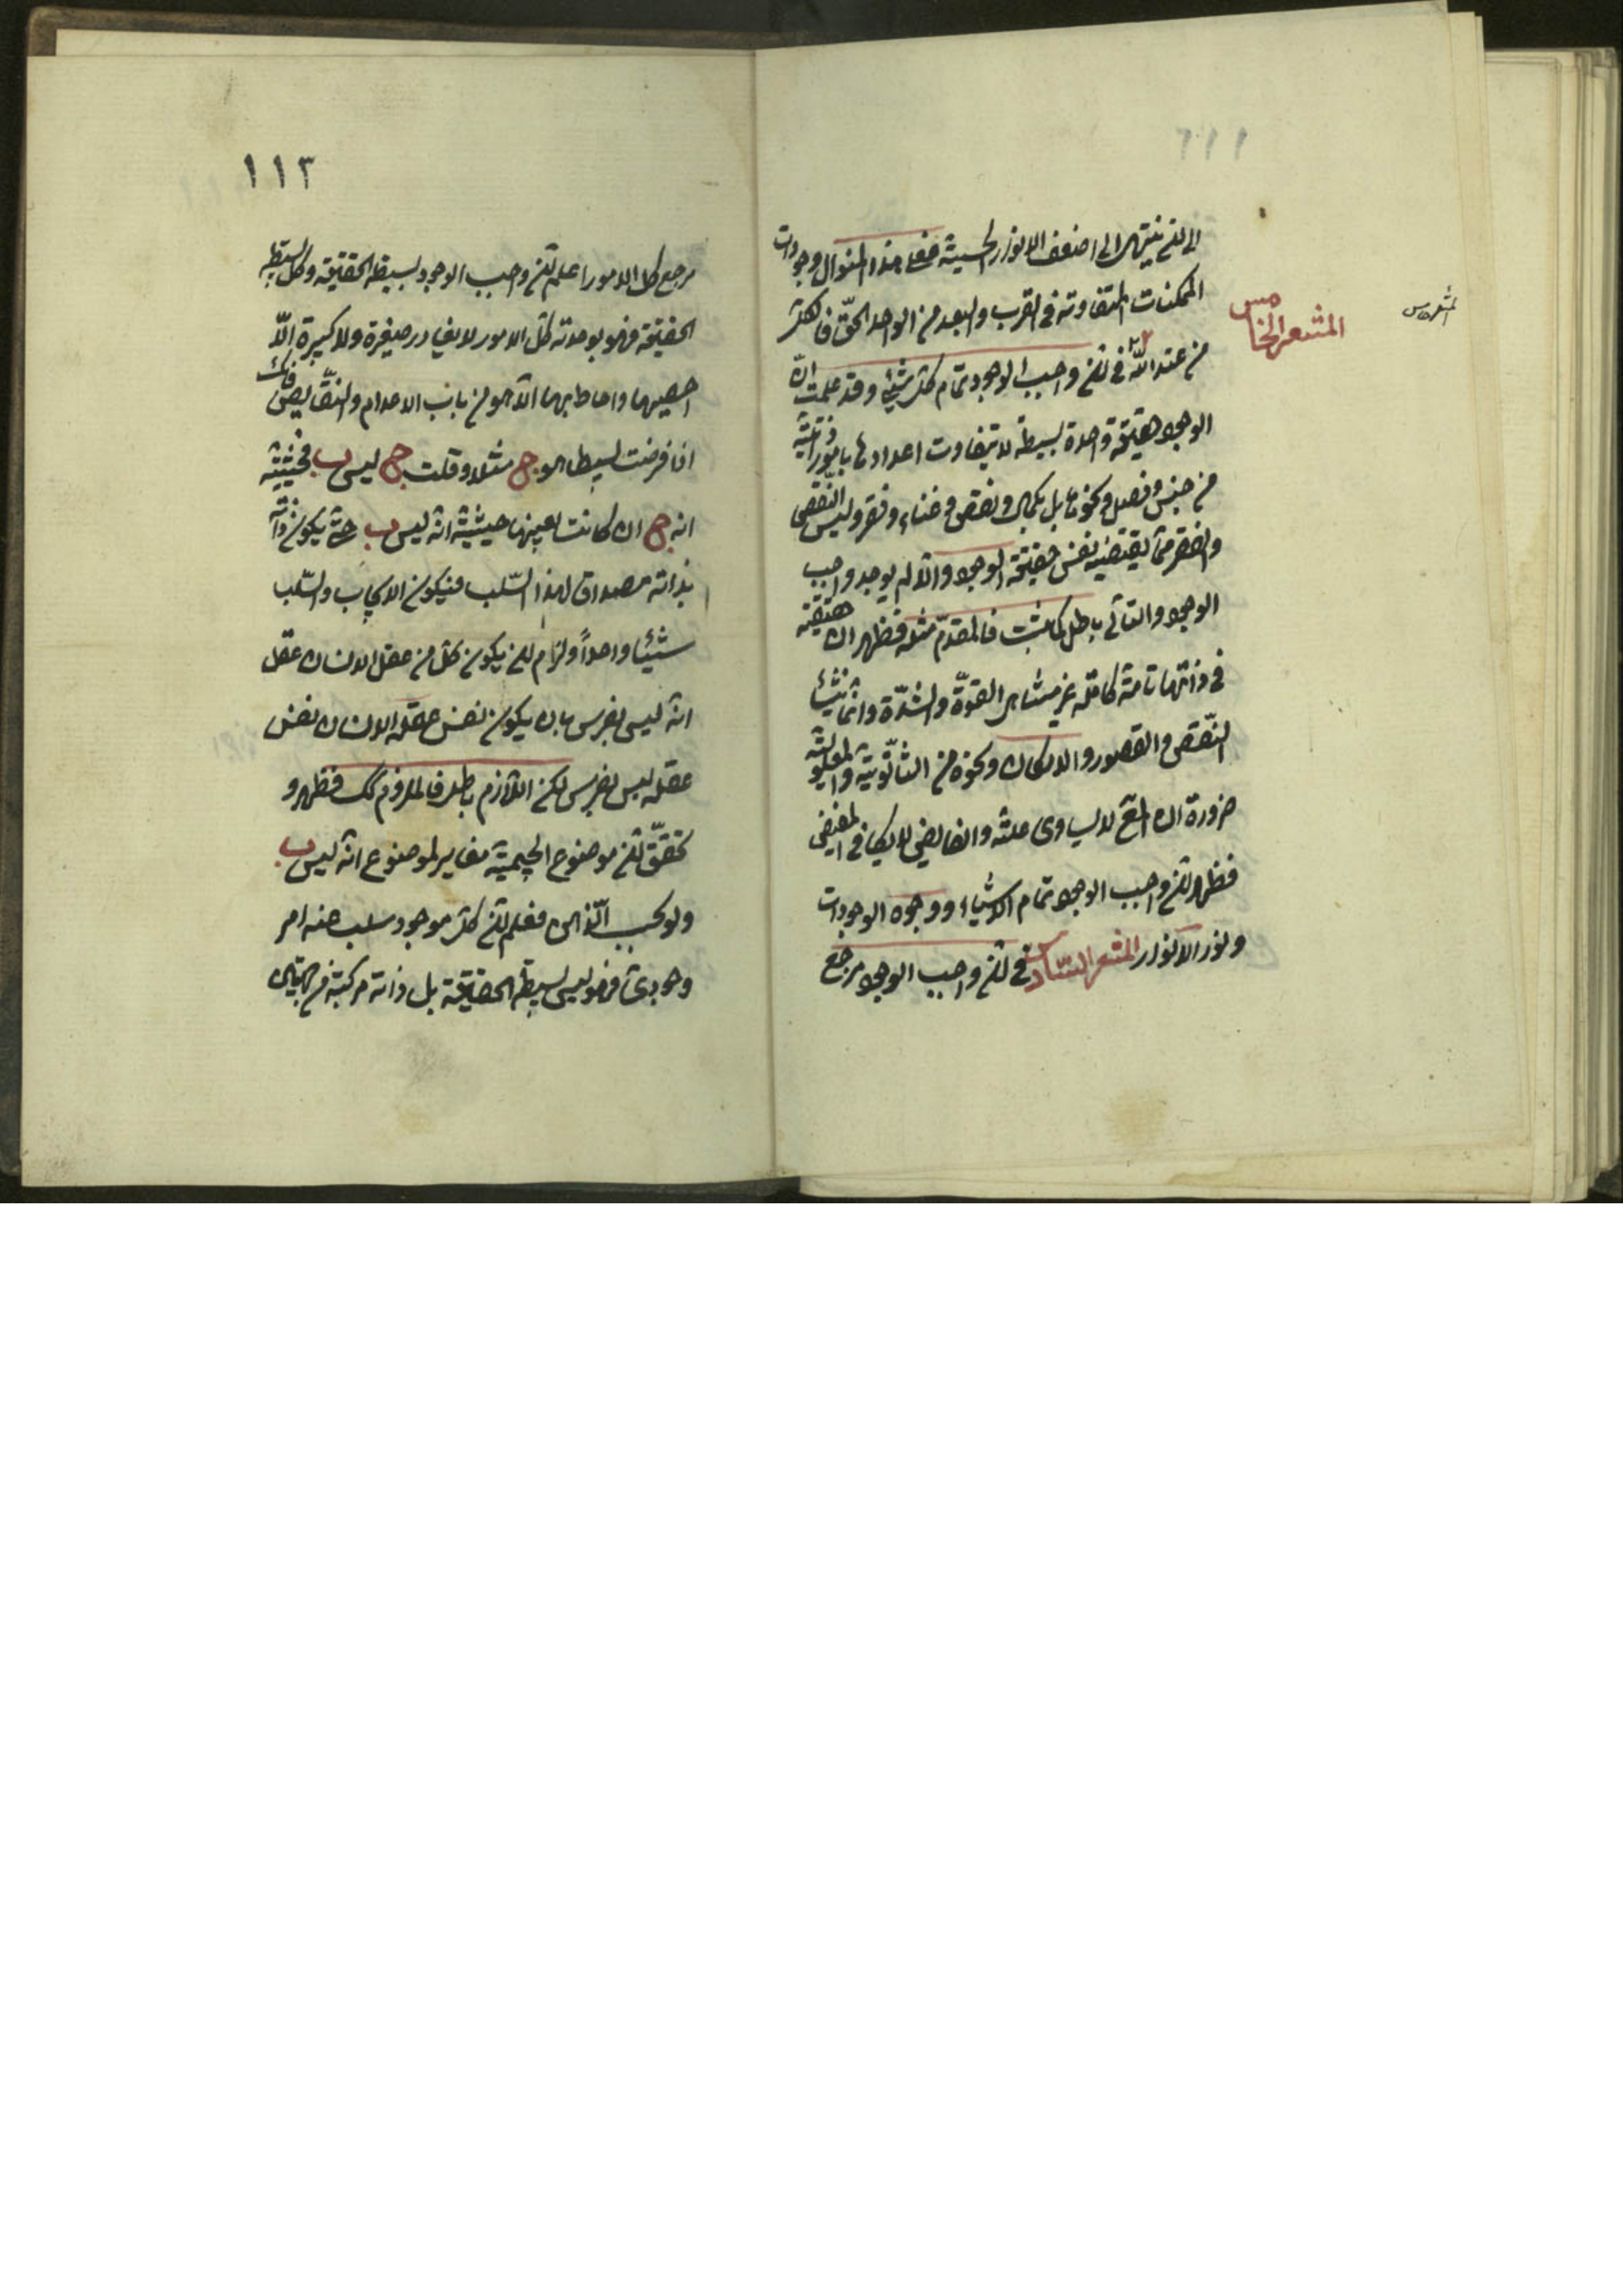 ١١٢
الى ان ينتهى الى اضعف الانوار الحسية فعلى هذا المنوال وجودات
الممكنات المتفاوتة فى القرب والبعد من الواحد الحق فالكل
من عند الله فى ان واجب الوجود تمام كل شىء وقد علمت ان
الوجود حقيقة واحدة بسيطة لا يتفاوت اعدادها بامور ذاتية
من جنس وفصل ونحوها بل بكمال ونقص وغناء وفقر وليس النقص
والفقر مما يقتضيه نفس حقيقة الوجود والا لم يوجد واجب
الوجود والتالى باطل كما ثبت فالمقدم مثله فظهر ان حقيقته
فى ذاتها تامة كاملة غير متناهى القوة والشدة وانما ينشأ
النقص والقصور والامكان ونحوه من الثانوية والمعلولية
ضرورة ان المع لا يساوى علته والفايض لا يكافى المفيض
فظهر ان واجب الوجود تمام الاشياء ووجود الوجودات
ونور الانوار المشعر السادس فى ان واجب الوجود مرجع
المشعر الخامس
المشعر الخامس
١١٣
مرجع كل الامور اعلم ان واجب الوجود بسيط الحقيقة وكل بسيط
الحقيقة فهو بوحدته كل الامور لا يغادر صغيرة ولا كبيرة الا
احصيها واحاط بها الا ما هو من باب الاعدام والنقايص فانك
اذا فرضت بسيطا هو ج مثلا وقلت ج ليس ب فحيثية
انه ج ان كانت بعينها حيثية انه ليس ب حتى يكون ذاته
بذاته مصداق لهذا السلب فيكون الايجاب والسلب
شيئا واحداً ولزم ان يكون كل من عقل الانسان عقل
انه ليس بفرس بان يكون نفس عقله الانسان نفس
عقله ليس بفرس لكن اللازم باطل فالملزوم كك فظهر و
تحقق ان موضوع الجيمية مغاير لموضوع انه ليس ب
ولو بحسب الذهن فعلم ان كل موجود سلب عنه امر
وجودى فهو ليس بسيط الحقيقة بل ذاته مركبة من جهتين